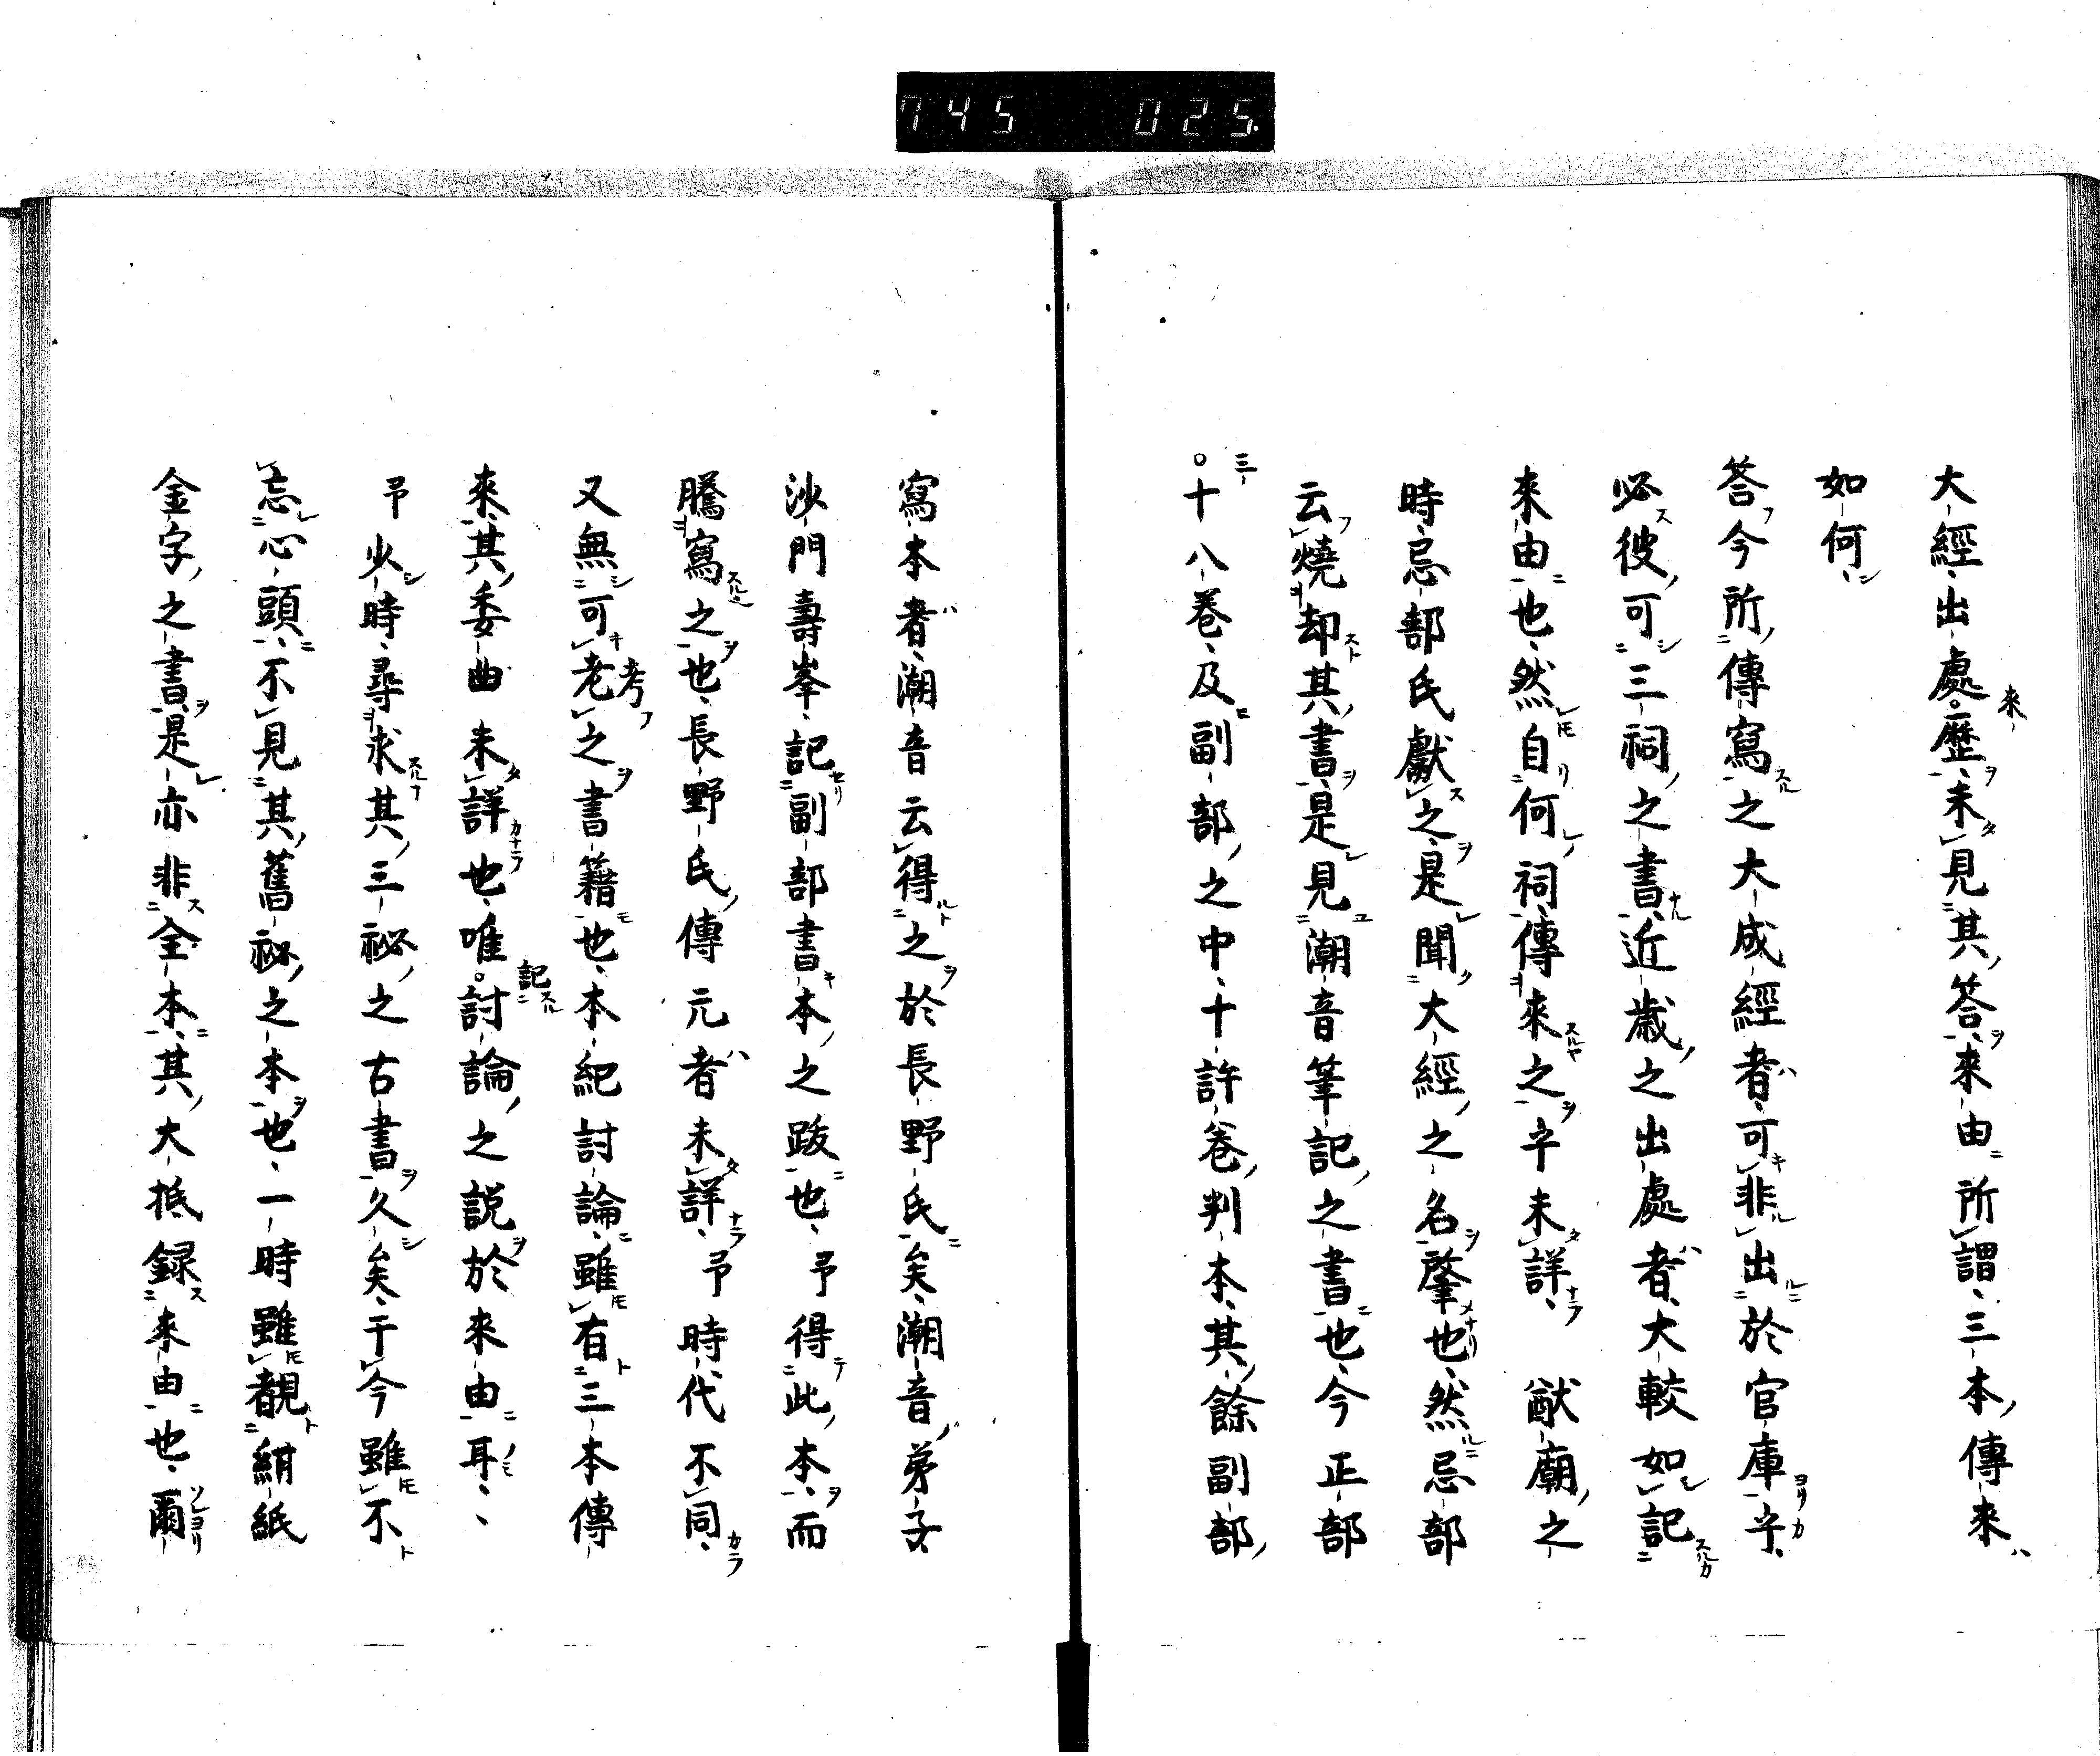 745 025
大經出處來歷未見其答來由所謂三本傳來
如何
答今所傳寫之大成經者可非出於官庫乎
必彼可三祠之書近歲之出處者大較如記
來由也然自何祠傳來之乎未詳 猷廟之
時忌部氏獻之是聞大經之名肇也然忌部
云燒却其書是見潮音筆記之書也今正部
三十八卷及副部之中十許卷判本其餘副部
寫本者潮音云得之於長野氏矣潮音弟子
沙門壽峯記副部書本之跋也予得此本而
騰寫之也長野氏傳元者未詳予時代不同
又無可考之書籍也本紀討論雖有三本傳
來其委曲未詳也唯記討論之說於來由耳
予少時尋求其三祕之古書久矣于今雖不
忘心頭不見其舊祕之本也一時雖覩紺紙
金字之書是亦非全本其大抵録來由也爾